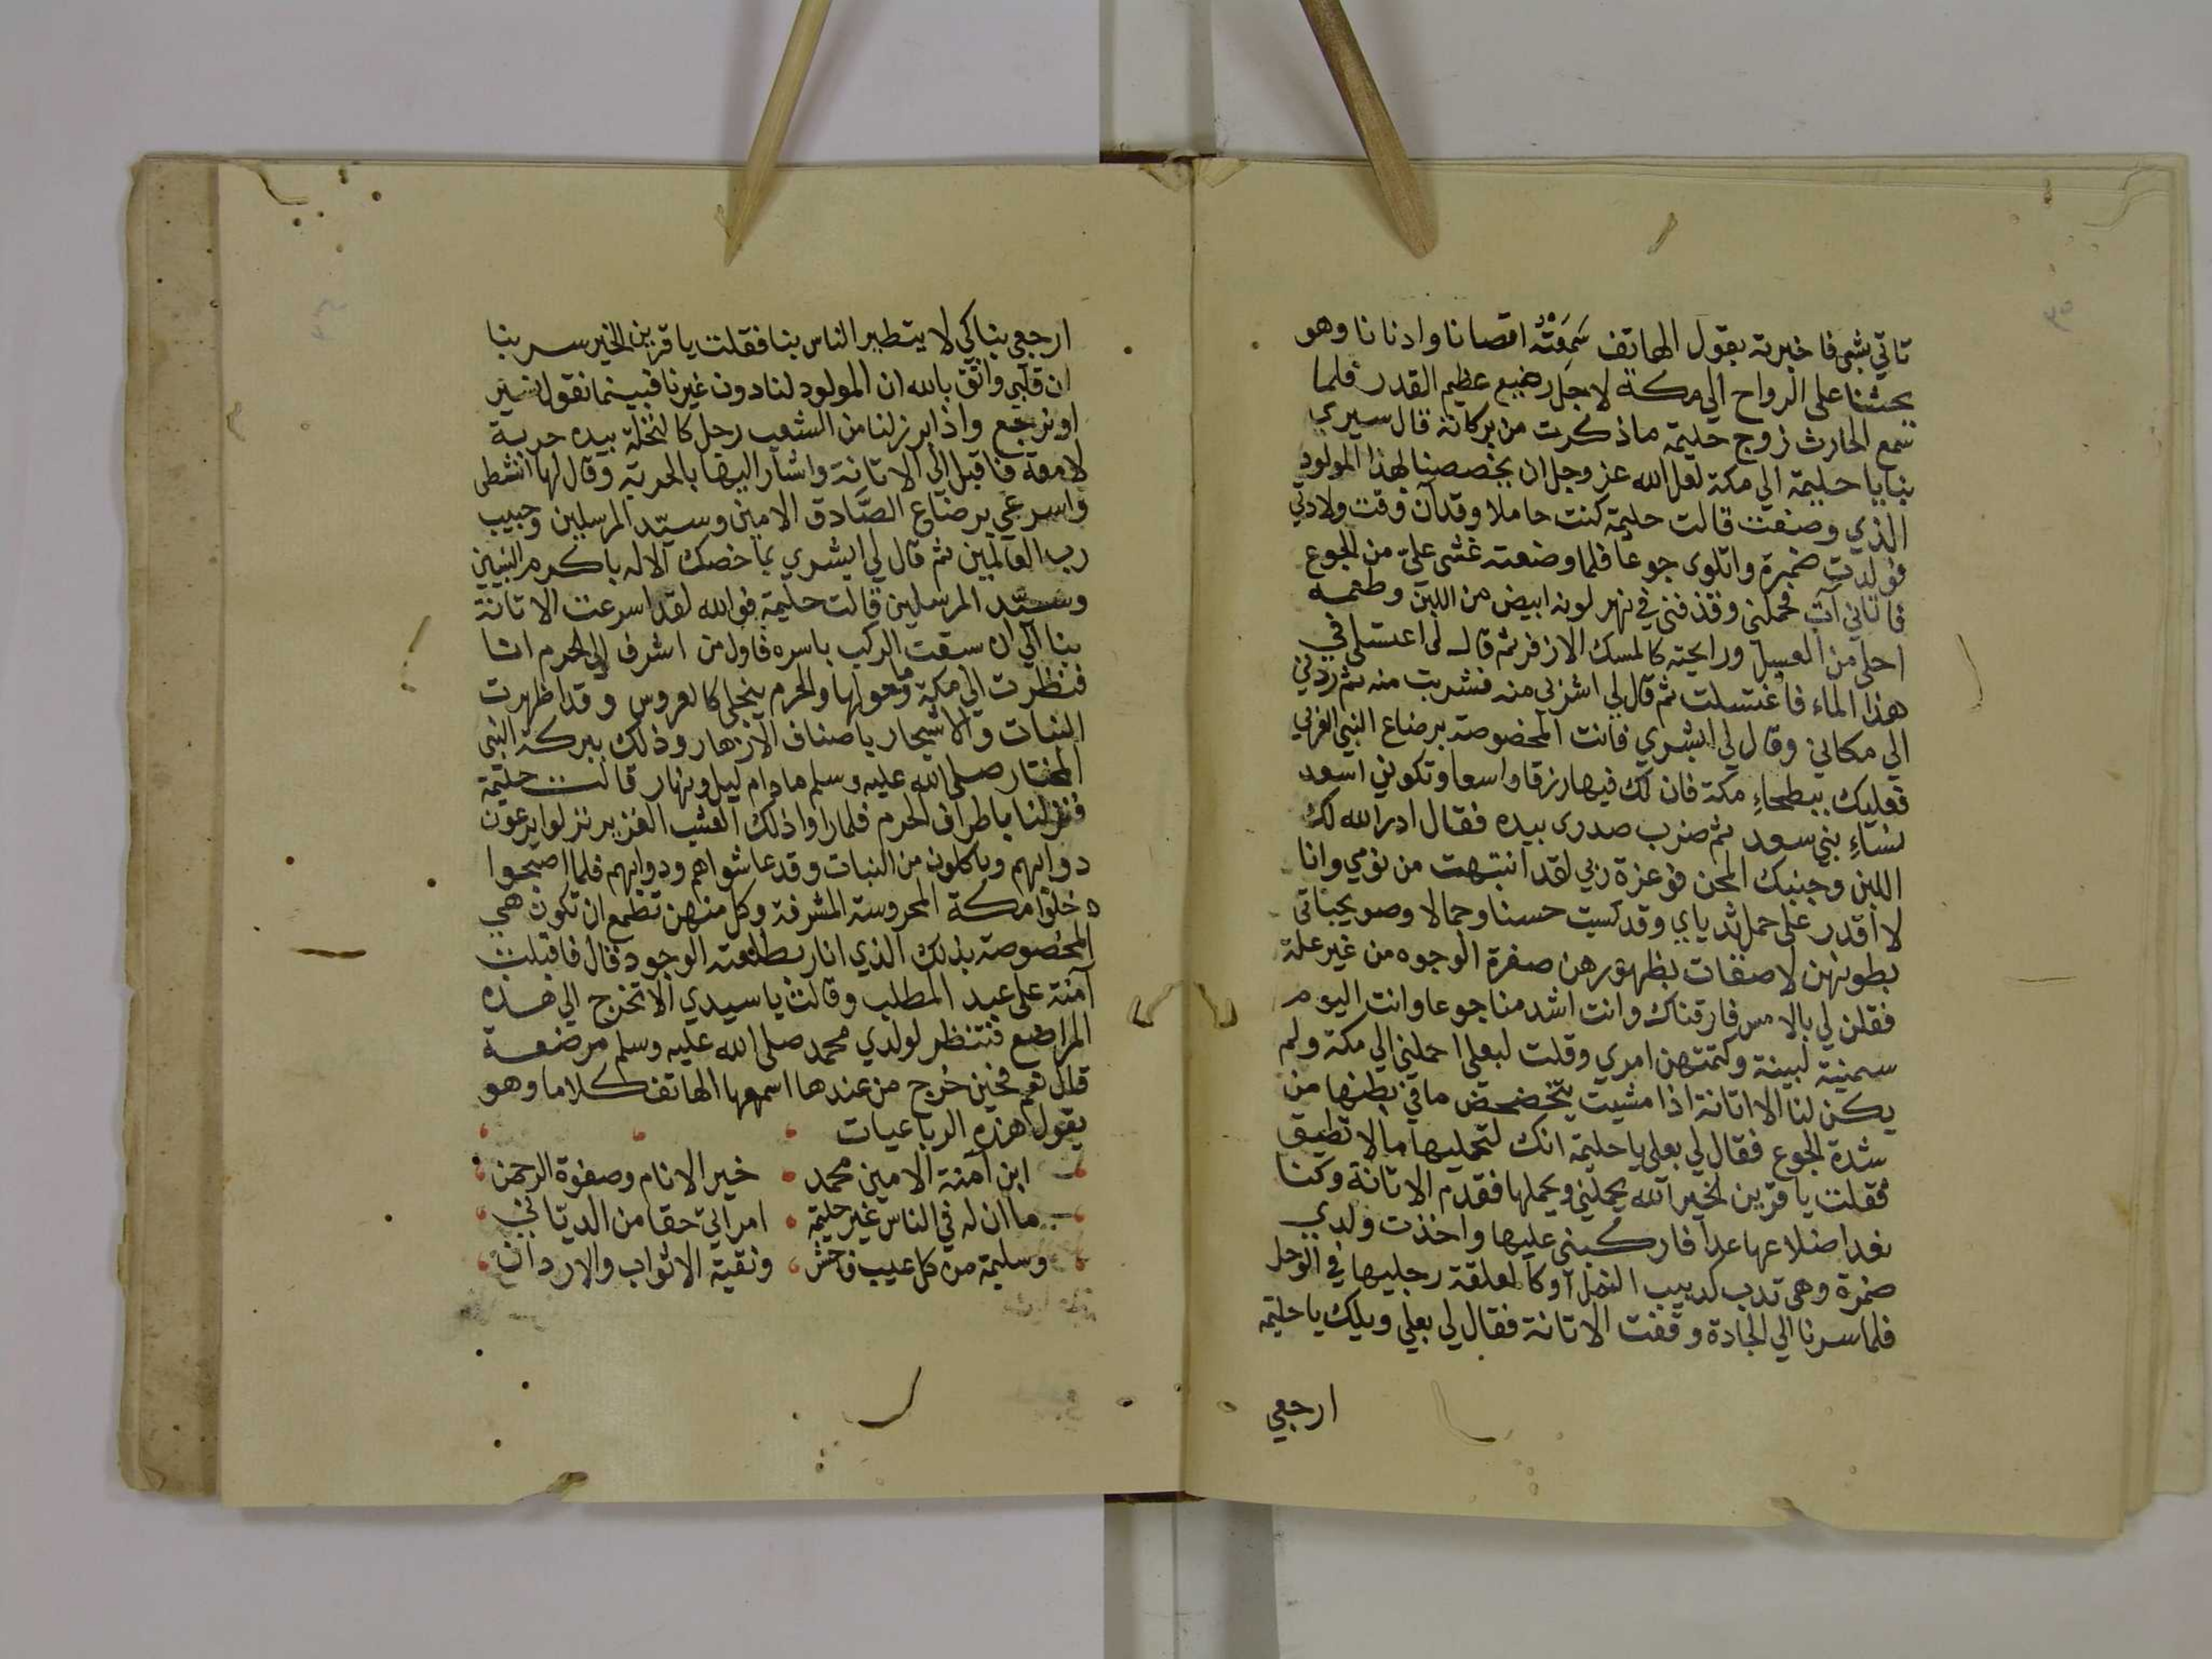 تاتي بشئ فاخبرته بقول الهاتف سَمِعَتْهُ اقصانا وادنانا وهو
يحثنا على الرواح الي مكة لاجل رضيع عظيم القدر فلما
سمع الحارث زوج حليمة ما ذكرت من بركاته قال سيري
بنا يا حليمة الي مكة لعل الله عز وجل ان يخصصنا لهذا المولود
الذي وصفت قالت حليمة كنت حاملا وقد آن وقت ولادتي
فولدت ضمرة واتلوى جوعا فلما وضعته غشى عليّ من الجوع
فاتاني آتٍ فحملني وقذفني في نهر لونه ابيض من اللبن وطعمه
احلى من العسل ورايحته كالمسك الازفر ثم قال لي اغتسلي في
هذا الماء فاغتسلت ثم قال لي اشربي منه فشربت منه ثم ردني
الي مكاني وقال لي ابشري فانت المخصوصة برضاع النبي العربي
فعليك ببطحاءِ مكة فان لك فيها رزقا واسعا وتكونين اسعد
نساءِ بني سعد ثم ضرب صدري بيده فقال ادر الله لك
اللبن وجنبك المحن فوعزة ربي لقد انتبهت من نومي وانا
لا اقدر على حمل ثدياي وقد كسيت حسنا وجمالا وصويحباتي
بطونهن لاصقات بظهورهن صفرة الوجوه من غير علة
فقلن لي بالامس فارقناك وانت اشد منا جوعا وانت اليوم
سمينة لبينة وكتمتهن امري وقلت لبعلي احمليني الي مكة ولم
يكن لنا الا اتانة اذا مشيت يتخضخض ما في بطنها من
شدة الجوع فقال لي بعلي يا حليمة انك لتحمليها ما لا تطيق
فقلت يا قرين الخير الله يحملني ويحملها فقدم الاتانة وكنا
نعد اضلاعها عدا فاركبني عليها واخذت ولدي
ضمرة وهي تدب كدبيب النمل او كالعلقة رجليها في الوحل
فلما سرنا الي الجادة وقفت الاتانة فقال لي بعلي ويلك يا حليمة
ارجعي
ارجعي بنا كي لا يتطير الناس بنا فقلت يا قرين الخير سر بنا
ان قلبي واثق بالله ان المولود لنا دون غيرنا فبينما نقول نسير
او نرجع واذا برز لنا من الشعب رجل كالنخلة بيده حربة
لامعة فاقبل الي الاتانة واشار اليها بالحربة وقال لها انشطى
واسرعي برضاع الصَّادق الامين وسيّد المرسلين وحبيب
رب العالمين ثم قال لي ابشري بما خصك الاله باكرم النبيين
وسيّد المرسلين قالت حليمة فوالله لقد اسرعت الاتانة
بنا الي ان سبقت الركب باسره فاول من اشرف الي الحرم انا
فنظرت الي مكة وما حولها والحرم ينجلي كالعروس وقد اظهرت
النبات والاشجار باصناف الازهار وذلك ببركة النبي
المختار صلى الله عليه وسلم ما دام ليل ونهار قالت حليمة
فنزلنا باطراف الحرم فلما راوا ذلك العشب الغزير نزلوا يرعون
دوابهم وياكلون من النبات وقد عاشوا هم ودوابهم فلما اصبحوا
دخلوا مكة المحروسة المشرفة وكل منهن تطمع ان تكون هي
المخصوصة بذلك الذي انار بطلعته الوجود قال فاقبلت
آمنة على عبد المطلب وقالت يا سيدي الا تخرج الي هذه
المراضع فتنظر لولدي محمد صلى الله عليه وسلم مرضعة
قال نعم فحين خرج من عندها اسمعها الهاتف كلاما وهو
يقول هذه الرباعيات
ابن آمنة الامين محمد خير الانام وصفوة الرحمن
ما ان له في الناس غير حليمة امراتي حقا من الديان
وسليمة من كل عيب فاحش ونقية الاثواب والاردان